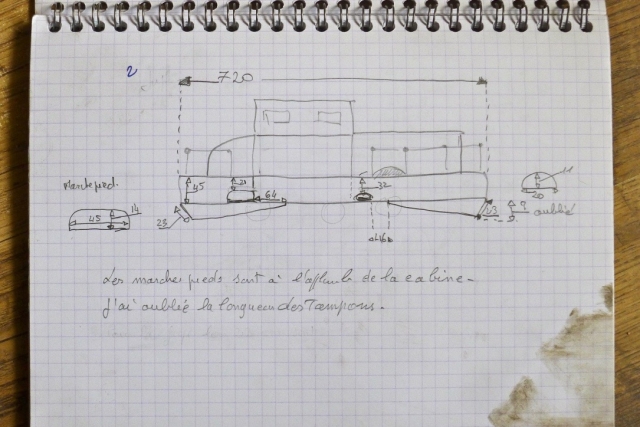 2
720
marchepied.
45
21
64
32
11
20
14
45
23
23
9
oublié
Les marche pieds sont à l'aplomb de la cabine.
J'ai oublié la longueur des Tampons.